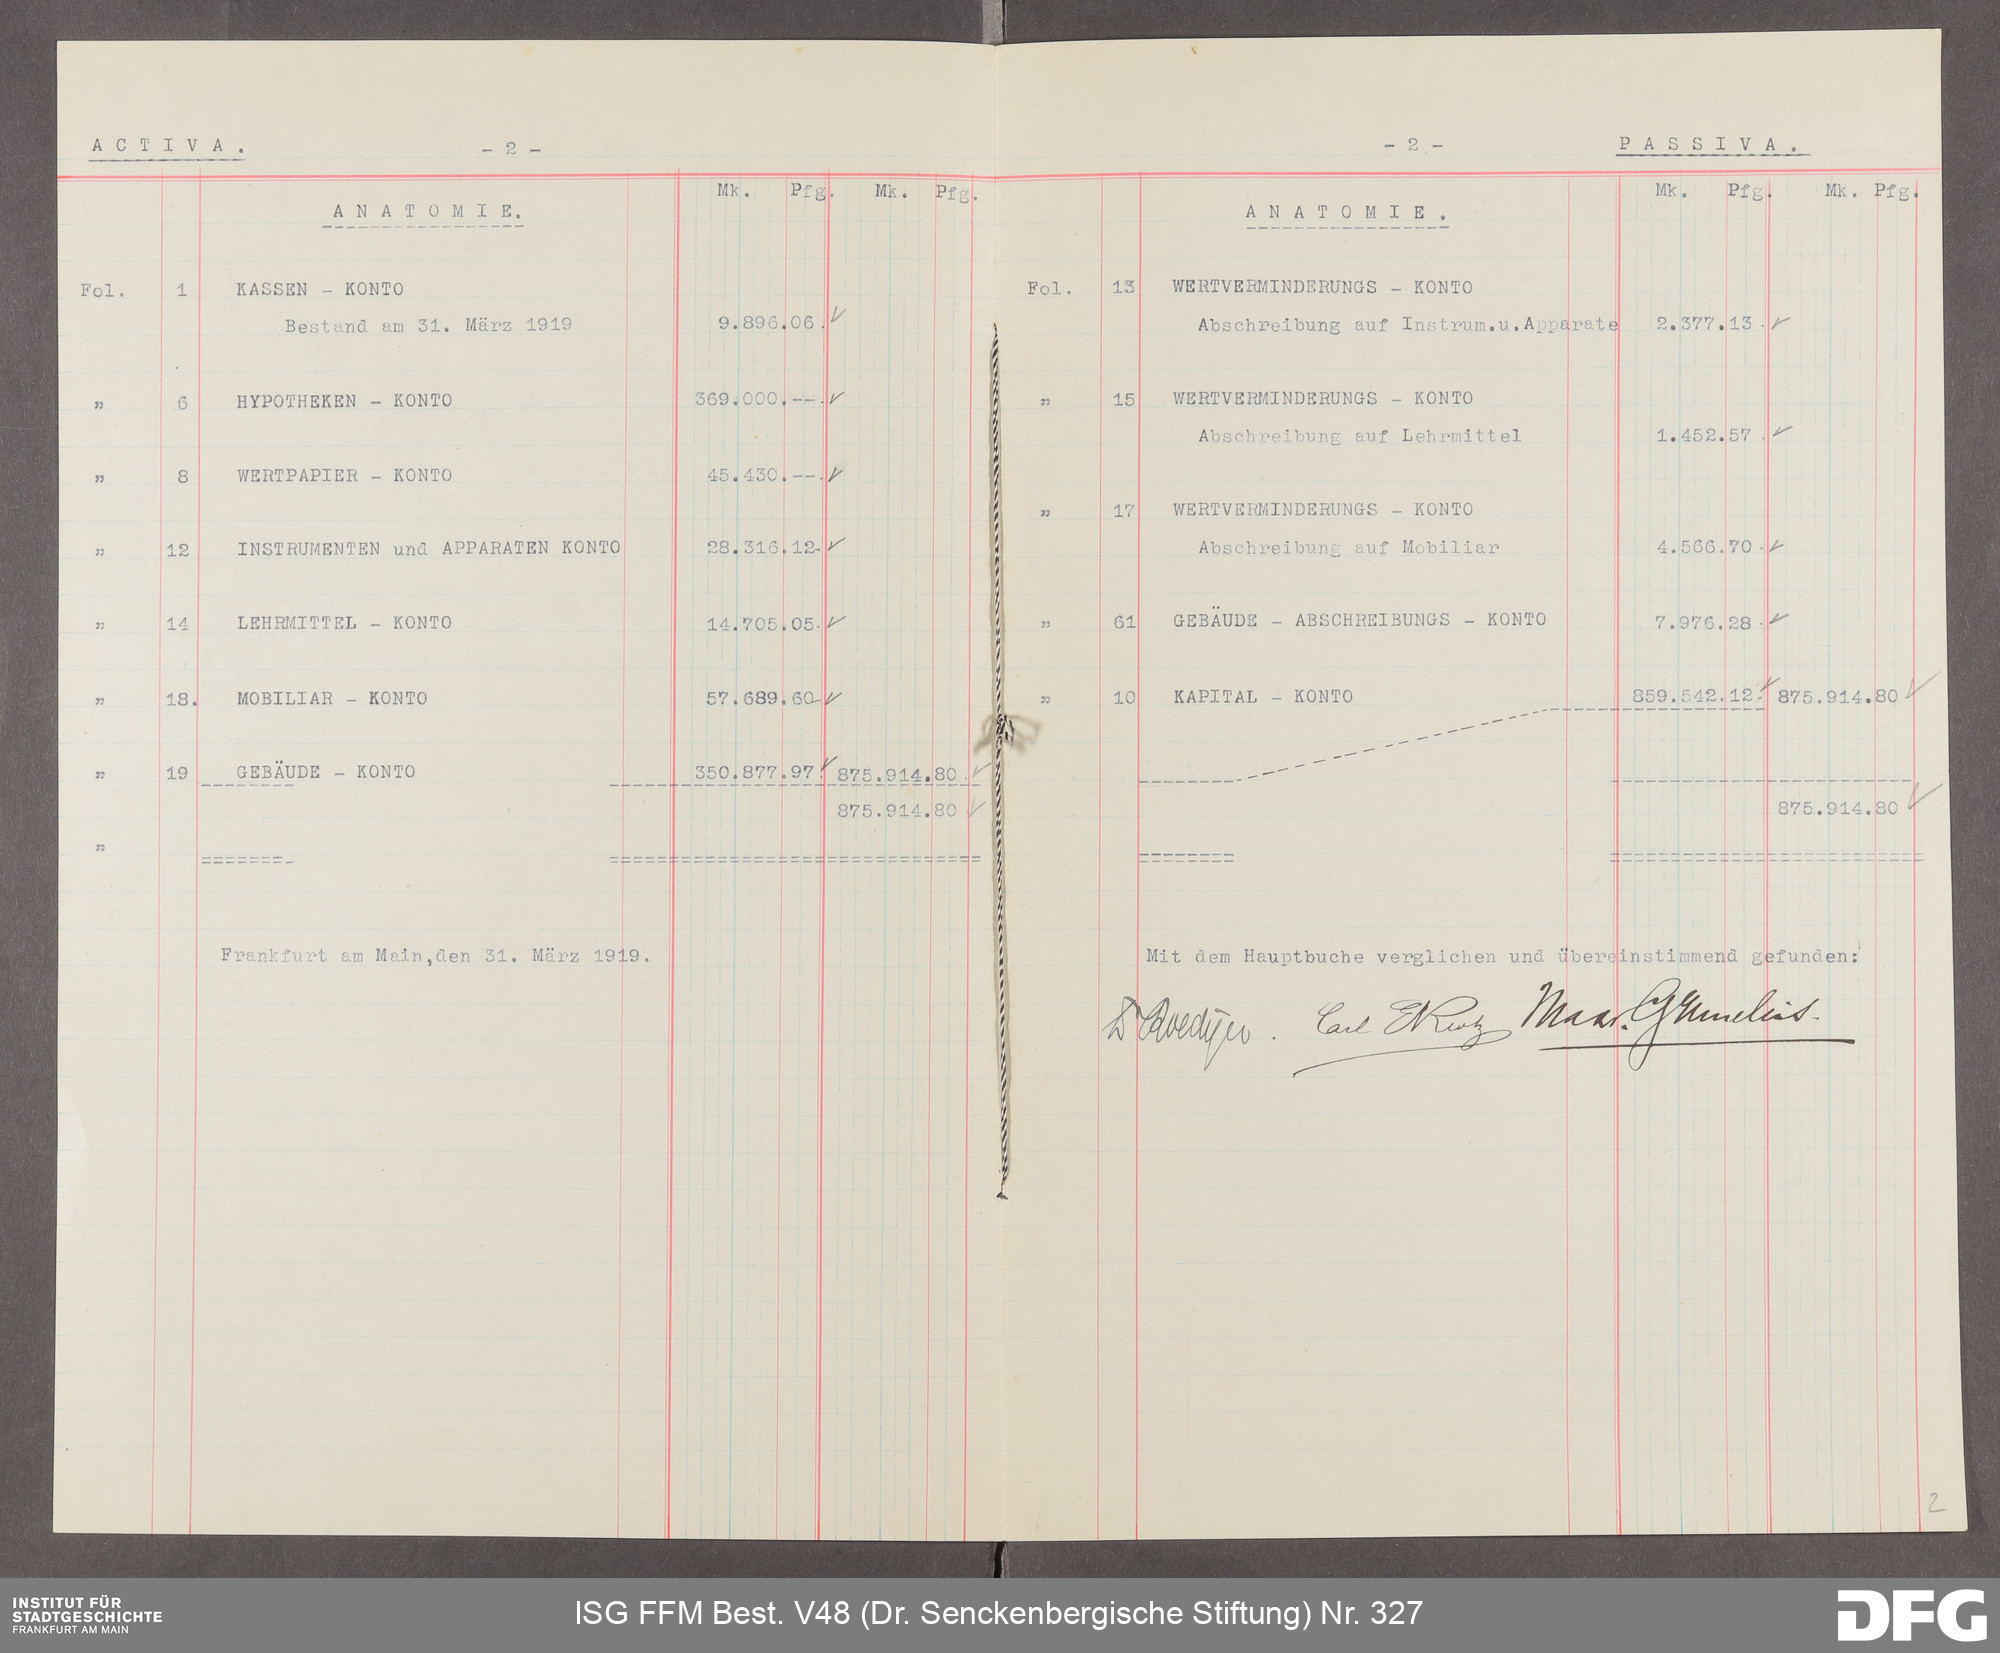 A C T I V A .
- 2 -
Mk. Pfg. Mk. Pfg.
A N A T O M I E.
Fol. 1 KASSEN - KONTO
Bestand am 31. März 1919 9.896.06.
" 6 HYPOTHEKEN - KONTO 369.000.--.
" 8 WERTPAPIER - KONTO 45.430.--.
" 12 INSTRUMENTEN und APPARATEN KONTO 28.316.12.
" 14 LEHRMITTEL - KONTO 14.705.05.
" 18. MOBILIAR - KONTO 57.689.60
" 19 GEBÄUDE - KONTO 350.877.97 875.914.80.
875.914.80
"
Frankfurt am Main,den 31. März 1919.
- 2 -
P A S S I V A .
Mk. Pfg. Mk. Pfg.
A N A T O M I E .
Fol. 13 WERTVERMINDERUNGS - KONTO
Abschreibung auf Instrum.u.Apparate 2.377.13.
" 15 WERTVERMINDERUNGS - KONTO
Abschreibung auf Lehrmittel 1.452.57.
" 17 WERTVERMINDERUNGS - KONTO
Abschreibung auf Mobiliar 4.566.70.
" 61 GEBÄUDE - ABSCHREIBUNGS - KONTO 7.976.28.
" 10 KAPITAL - KONTO 859.542.12. 875.914.80
875.914.80
Mit dem Hauptbuche verglichen und übereinstimmend gefunden:
Dr Roediger. Carl
2
INSTITUT FÜR
STADTGESCHICHTE
FRANKFURT AM MAIN
ISG FFM Best. V48 (Dr. Senckenbergische Stiftung) Nr. 327
DFG